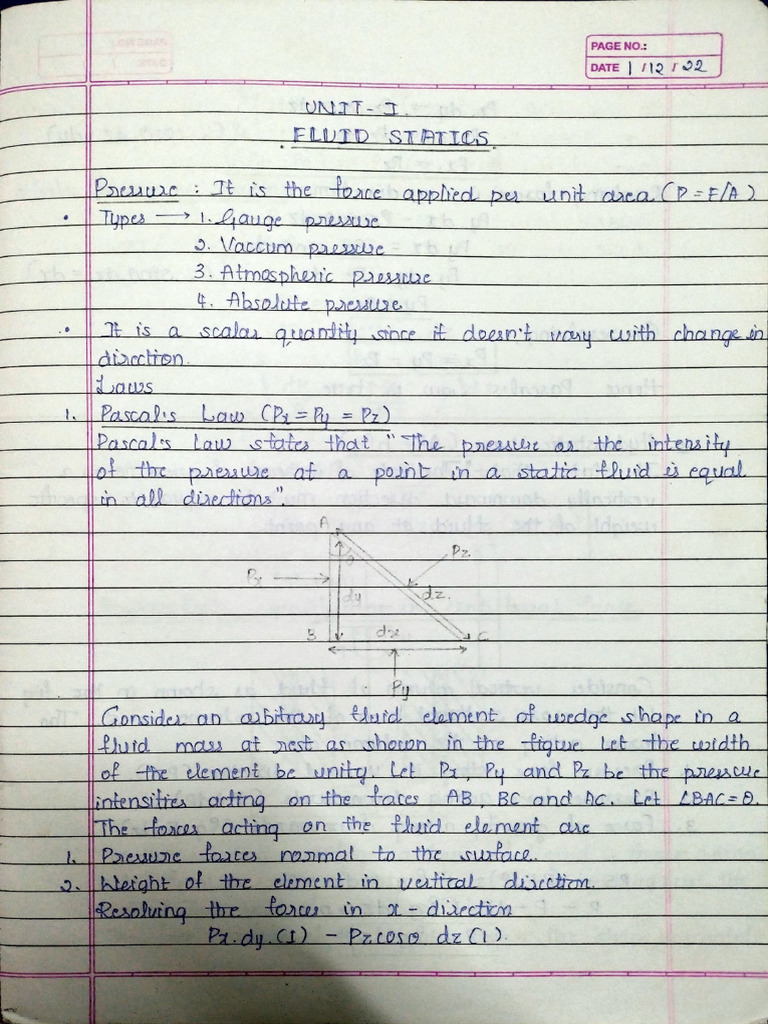 PAGE NO.:
DATE 1/12/22
UNIT-I
FLUID STATICS
Pressure : It is the force applied per unit area (P = F/A)
• Types → 1. Gauge pressure
2. Vaccum pressure
3. Atmospheric pressure
4. Absolute pressure
• It is a scalar quantity since it doesn't vary with change in
direction.
Laws
1. Pascal's Law (Px = Py = Pz)
Pascal's Law states that "The pressure or the intensity
of the pressure at a point in a static fluid is equal
in all directions".
A
θ
Pz
Px
dy
dz.
B
dx
C
Py
Consider an arbitrary fluid element of wedge shape in a
fluid mass at rest as shown in the figure. Let the width
of the element be unity. Let Px, Py and Pz be the pressure
intensities acting on the faces AB, BC and AC. Let ∠BAC=θ.
The forces acting on the fluid element are
1. Pressure forces normal to the surface.
2. Weight of the element in vertical direction.
Resolving the forces in x-direction
Px.dy.(1) - Pzcosθ dz(1).